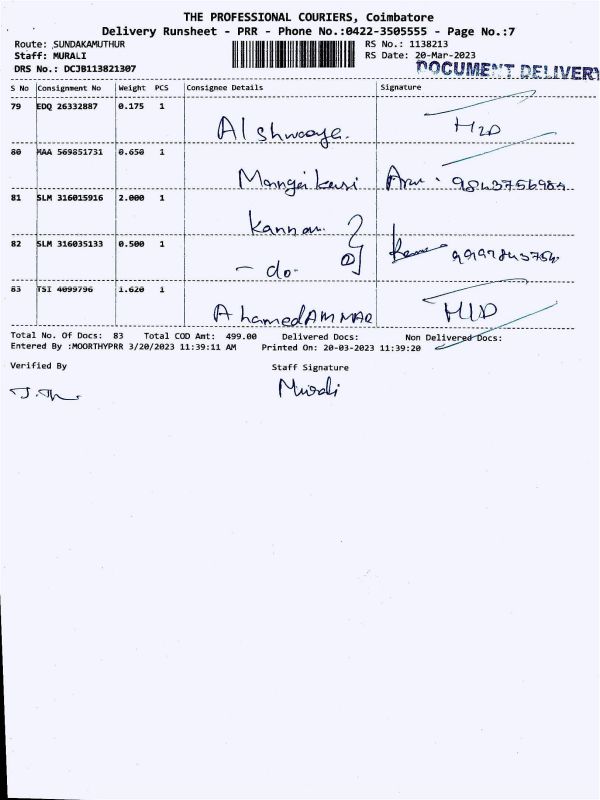 THE PROFESSIONAL COURIERS, Coimbatore
Delivery Runsheet - PRR - Phone No.:0422-3505555 - Page No.:7
Route: SUNDAKAMUTHUR RS No.: 1138213
Staff: MURALI RS Date: 20-Mar-2023
DRS No.: DCJB113821307 DOCUMENT DELIVERY
S No Consignment No Weight PCS Consignee Details Signature
79 EDQ 26332887 0.175 1
Al
80 MAA 569851731 0.650 1
81 SLM 316015916 2.000 1
Kannan
82 SLM 316035133 0.500 1
- do -
83 TSI 4099796 1.620 1
Ahamed AMMAR
Total No. Of Docs: 83 Total COD Amt: 499.00 Delivered Docs: Non Delivered Docs:
Entered By :MOORTHYPRR 3/20/2023 11:39:11 AM Printed On: 20-03-2023 11:39:20
Verified By Staff Signature
Murali